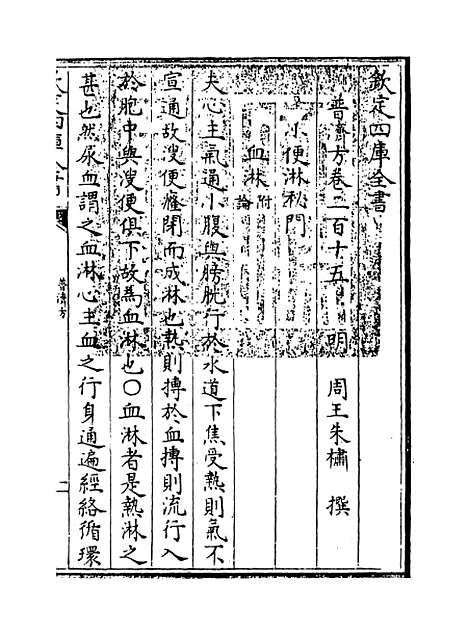 欽定四庫全書
普濟方卷二百十五　明　周王朱橚　撰
小便淋秘門
血淋附論
夫心主氣通小腹與膀胱行於水道下焦受熱則氣不
宣通故溲便癃閉而成淋也熱則搏於血搏則流行入
於胞中與溲便俱下故為血淋也〇血淋者是熱淋之
甚也然尿血謂之血淋心主血之行身通遍經絡循環
普濟方
二